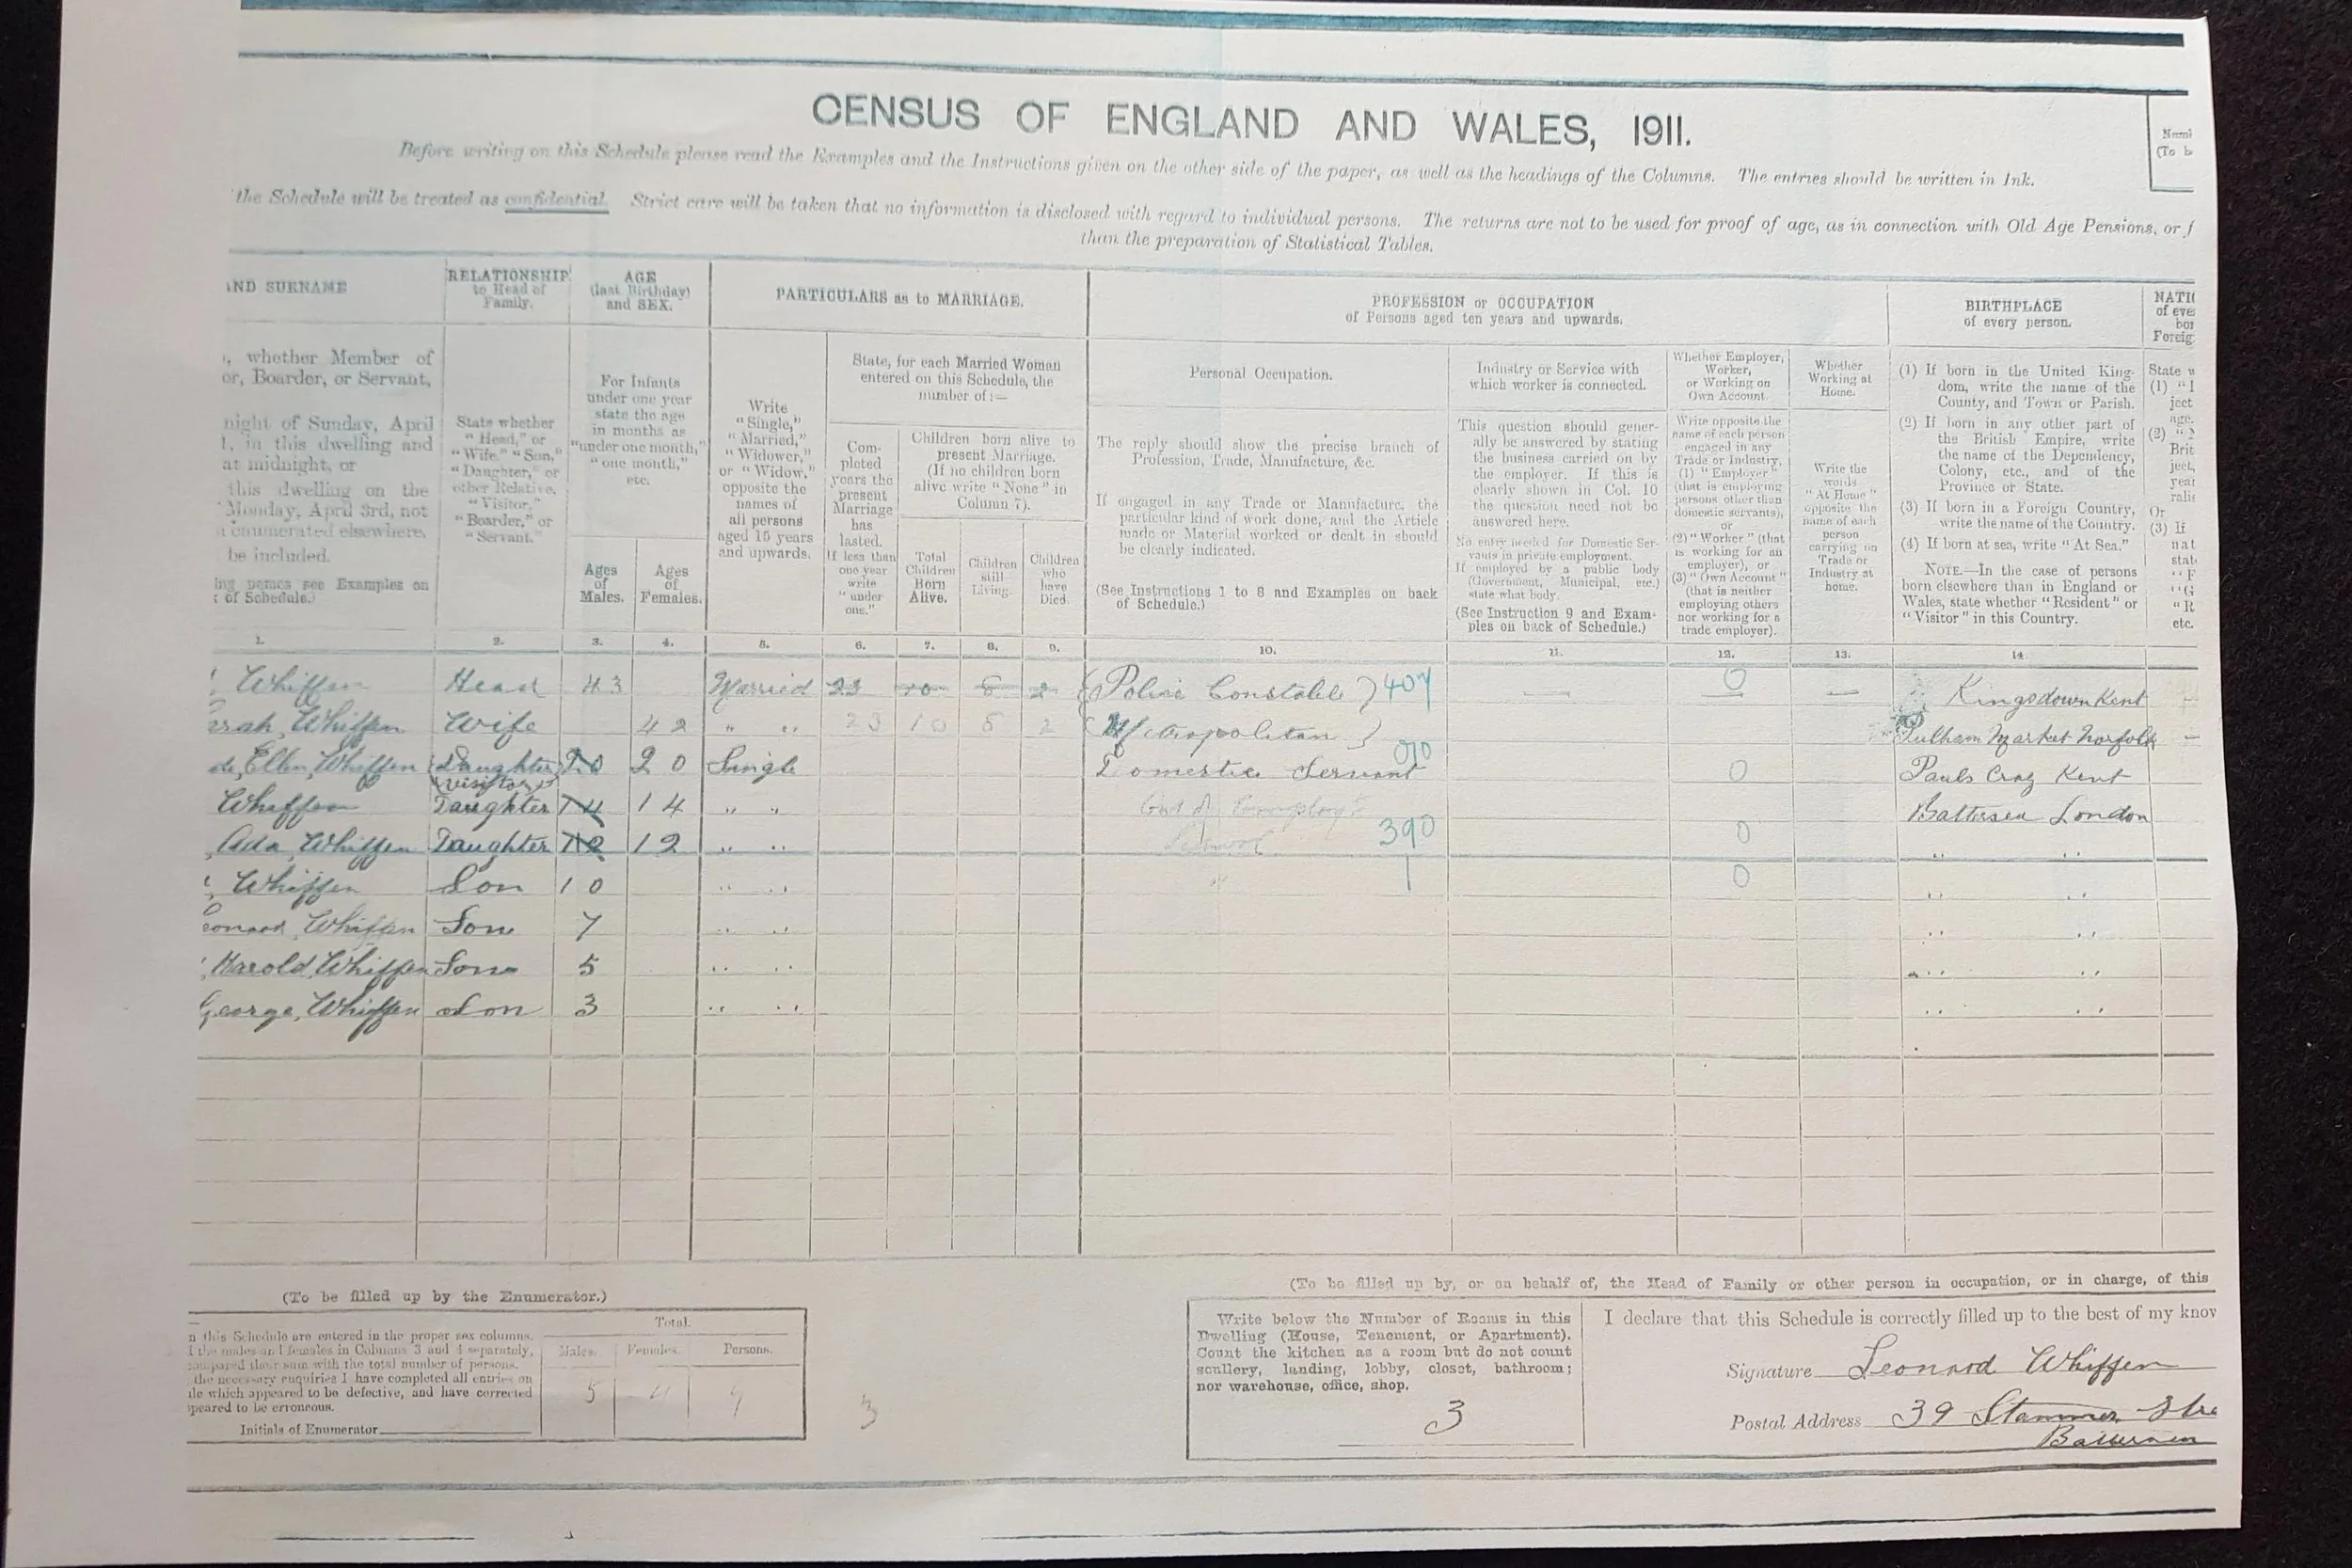 CENSUS OF ENGLAND AND WALES, 1911.
Before writing on this Schedule please read the Examples and the Instructions given on the other side of the paper, as well as the headings of the Columns. The entries should be written in Ink.
the Schedule will be treated as confidential. Strict care will be taken that no information is disclosed with regard to individual persons. The returns are not to be used for proof of age, as in connection with Old Age Pensions, or f
than the preparation of Statistical Tables.
(To b
AND SURNAME
, whether Member of
or, Boarder, or Servant,
night of Sunday, April
, in this dwelling and
at midnight, or
this dwelling on the
Monday, April 3rd, not
enumerated elsewhere,
be included.
see Examples on
of Schedule.)
RELATIONSHIP
to Head of
Family.
State whether
"Head," or
"Wife," "Son,"
"Daughter," or
other Relative,
"Visitor,"
"Boarder," or
"Servant."
AGE
(last Birthday)
and SEX.
For Infants
under one year
state the age
in months as
"under one month,"
"one month,"
etc.
Ages
of
Males.
Ages
of
Females.
PARTICULARS as to MARRIAGE.
Write
"Single,"
"Married,"
"Widower,"
or "Widow,"
opposite the
names of
all persons
aged 15 years
and upwards.
State, for each Married Woman
entered on this Schedule, the
number of:—
Com-
pleted
years the
present
Marriage
has
lasted.
If less than
one year
write
"under
one."
Children born alive to
present Marriage.
(If no children born
alive write "None" in
Column 7).
Total
Children
Born
Alive.
Children
still
Living.
Children
who
have
Died.
PROFESSION or OCCUPATION
of Persons aged ten years and upwards.
Personal Occupation.
The reply should show the precise branch of
Profession, Trade, Manufacture, &c.
If engaged in any Trade or Manufacture, the
particular kind of work done, and the Article
made or Material worked or dealt in should
be clearly indicated.
(See Instructions 1 to 8 and Examples on back
of Schedule.)
Industry or Service with
which worker is connected.
This question should gener-
ally be answered by stating
the business carried on by
the employer. If this is
clearly shown in Col. 10
the question need not be
answered here.
No entry needed for Domestic Ser-
vants in private employment.
If employed by a public body
(Government, Municipal, etc.)
state what body.
(See Instruction 9 and Exam-
ples on back of Schedule.)
Whether Employer,
Worker,
or Working on
Own Account.
Write opposite the
name of each person
engaged in any
Trade or Industry,
(1) "Employer"
(that is employing
persons other than
domestic servants),
or
(2) "Worker" (that
is working for an
employer), or
(3) "Own Account"
(that is neither
employing others
nor working for a
trade employer).
Whether
Working at
Home.
Write the
words
"At Home"
opposite the
name of each
person
carrying on
Trade or
Industry at
home.
BIRTHPLACE
of every person.
(1) If born in the United King-
dom, write the name of the
County, and Town or Parish.
(2) If born in any other part of
the British Empire, write
the name of the Dependency,
Colony, etc., and of the
Province or State.
(3) If born in a Foreign Country,
write the name of the Country.
(4) If born at sea, write "At Sea."
NOTE.—In the case of persons
born elsewhere than in England or
Wales, state whether "Resident" or
"Visitor" in this Country.
NATI
of eve
bor
Foreig
State w
(1)
ject
age.
(2)
Brit
ject,
year
ralis
Or
(3) If
nat
stat
"F
"G
"R
etc.
1. 2. 3. 4. 5. 6. 7. 8. 9. 10. 11. 12. 13. 14
Whiffen Head 43 Married 23 10 8 2 (Police Constable) 407 0 — Kingsdown Kent
arah, Whiffen Wife 42 " " 23 10 8 2 (Metropolitan) Pulham Market Norfolk —
de, Ellen, Whiffen Daughter 20 20 Single Domestic Servant 010 0 Pauls Cray Kent
(Visitor)
Whiffen Daughter 14 14 " " Out of Employ 0 Battersea London
Ada, Whiffen Daughter 12 12 " " School 390 0 " "
Whiffen Son 10 " " " 0 " "
eonard, Whiffen Son 7 " " " "
Harold, Whiffen Son 5 " " " "
George, Whiffen Son 3 " " " "
(To be filled up by the Enumerator.)
n this Schedule are entered in the proper sex columns.
the males and females in Columns 3 and 4 separately,
compared their sum with the total number of persons.
the necessary enquiries I have completed all entries on
le which appeared to be defective, and have corrected
peared to be erroneous.
Initials of Enumerator
Total.
Males. Females. Persons.
5 4 9
3
(To be filled up by, or on behalf of, the Head of Family or other person in occupation, or in charge, of this
Write below the Number of Rooms in this
Dwelling (House, Tenement, or Apartment).
Count the kitchen as a room but do not count
scullery, landing, lobby, closet, bathroom;
nor warehouse, office, shop.
3
I declare that this Schedule is correctly filled up to the best of my know
Signature Leonard Whiffen
Postal Address 39 Stanmer Stre
Battersea